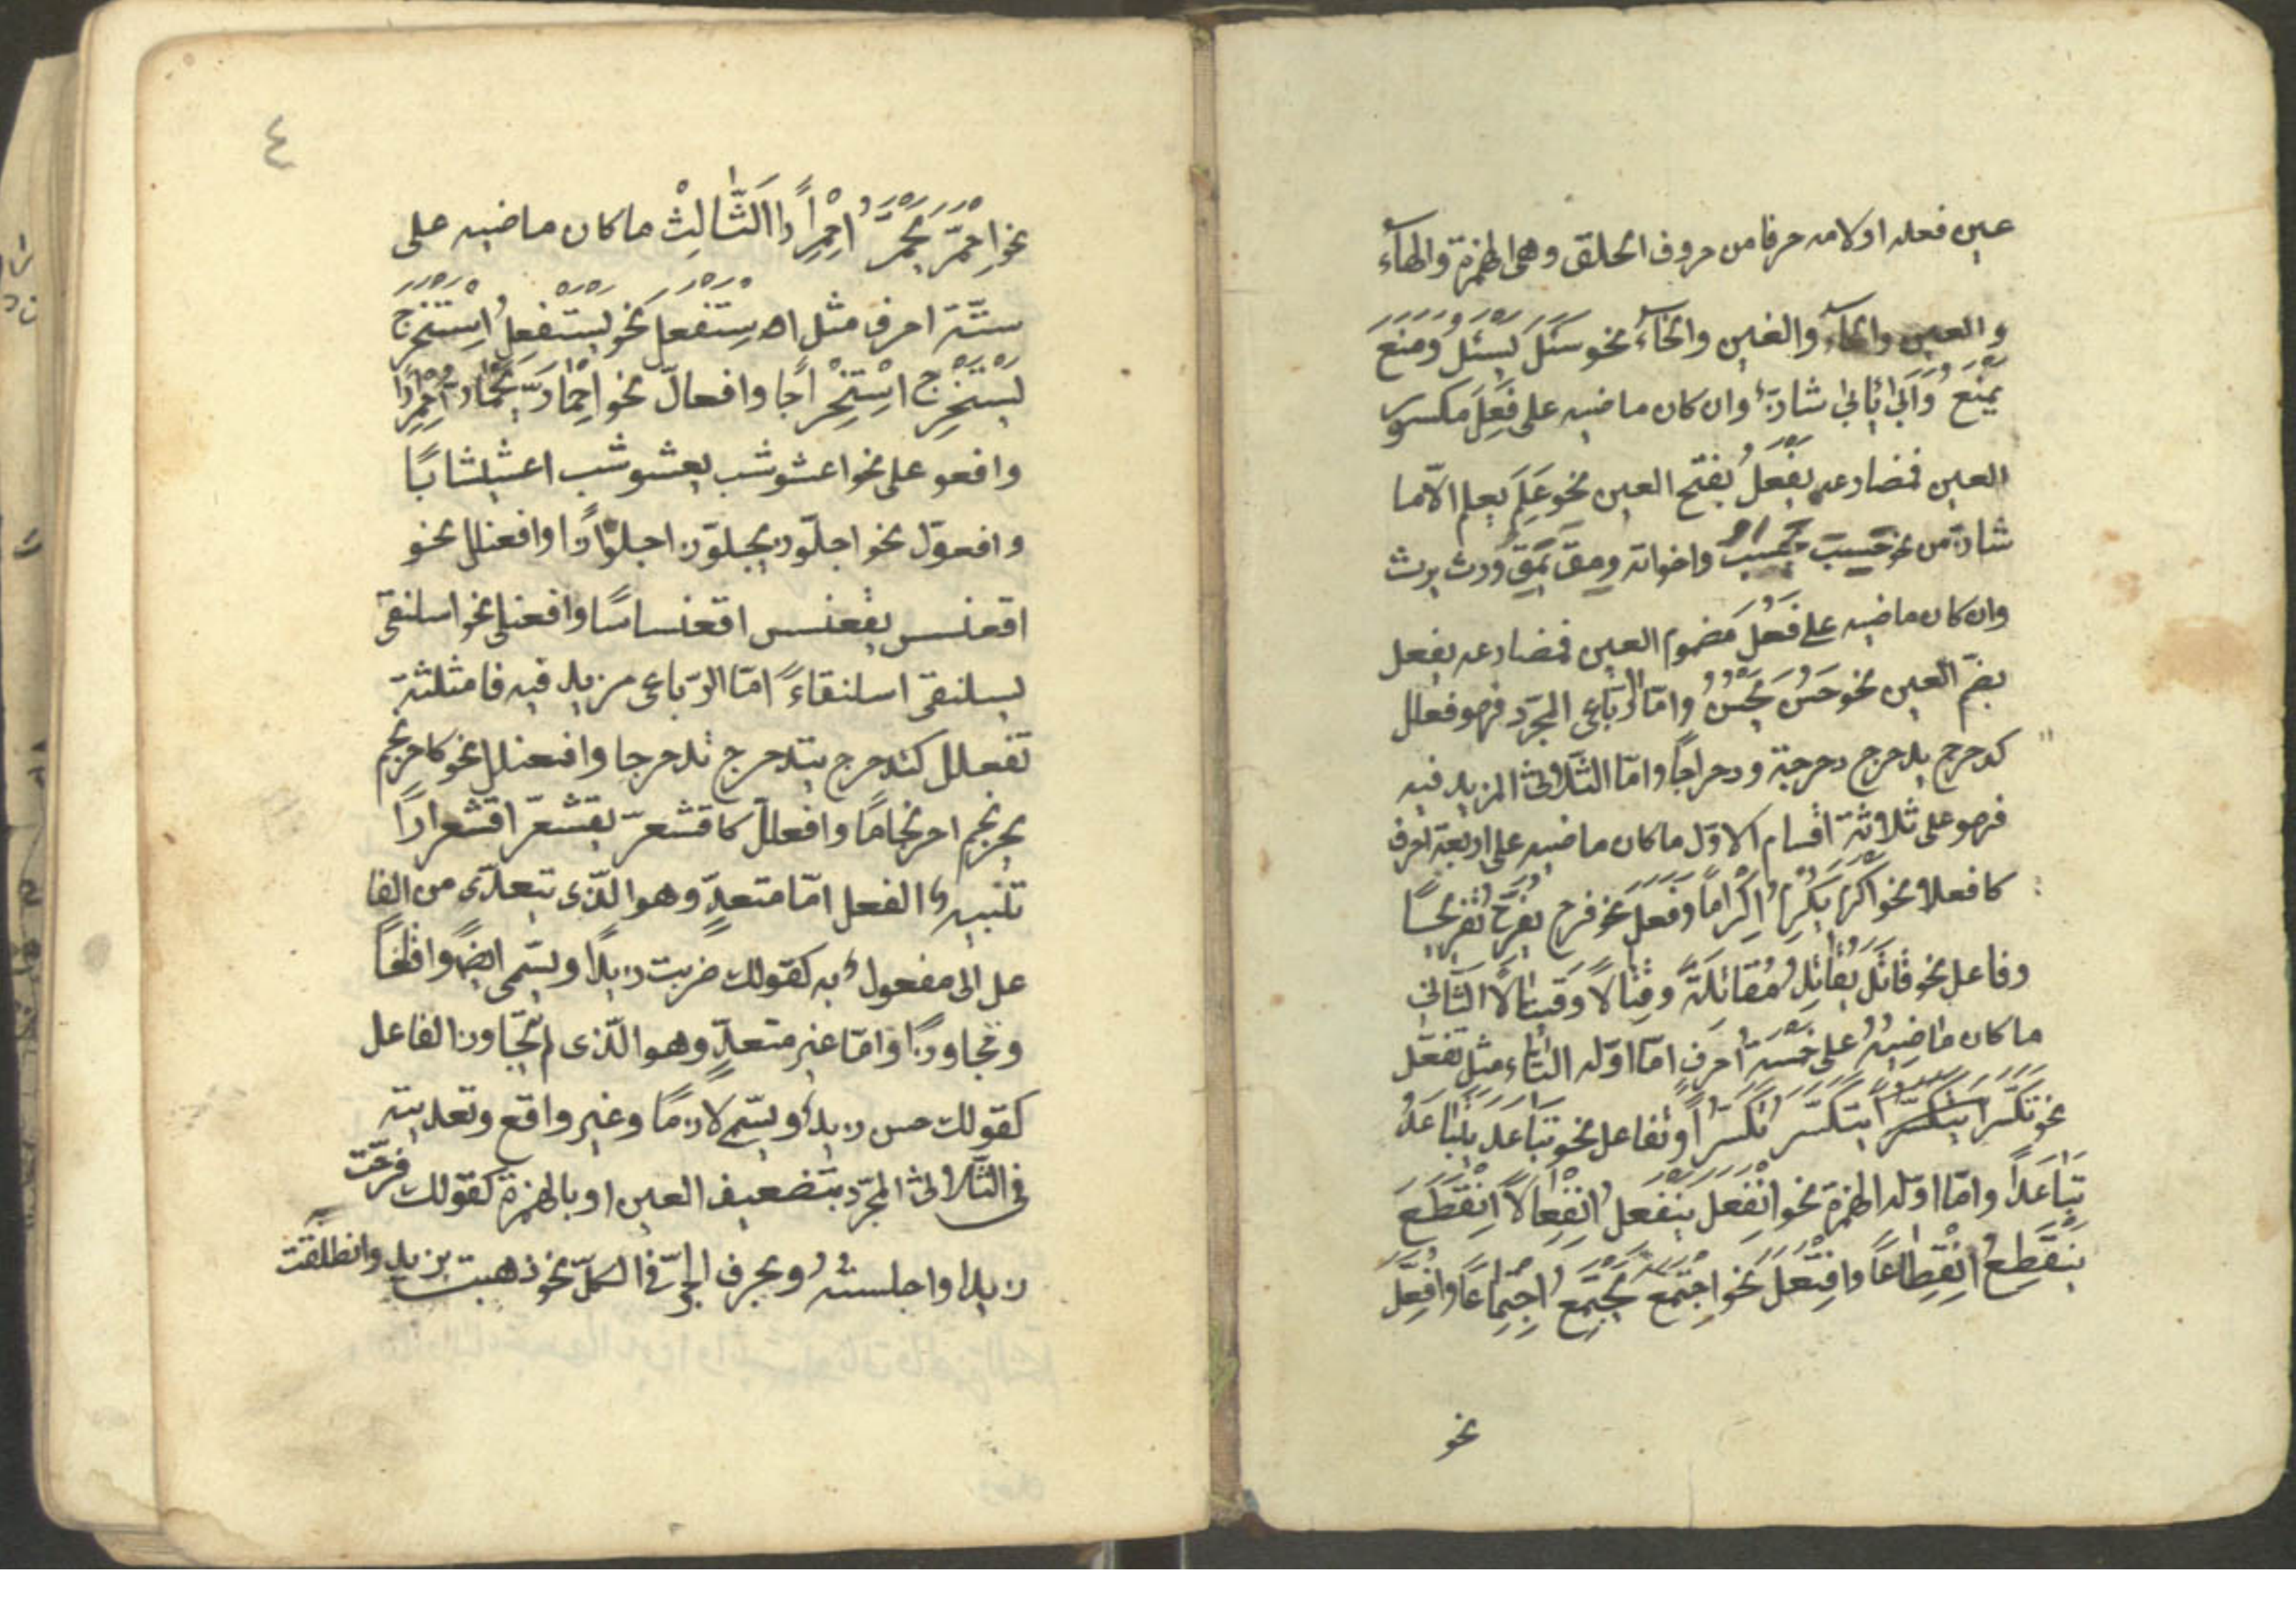 عين فعله او لامه حرفا من حروف الحلق وهى الهمزة والهاء
والعين والحاء والغين والخاء نحو سَئَلَ يَسْئَلُ وَمَنَعَ
يَمْنَعُ وَاَبَى يَأبى شاذ وان كان ماضيه على فَعِلَ مكسور
العين فمضارعه يَفْعَلُ بفتح العين نحو عَلِمَ يعلم الاّ ما
شاذ من نحو حَسِبَ يحسِبُ واخواته ومِقَ يَمِقُ وورث يرث
وان كان ماضيه على فَعُلَ مضموم العين فمضارعه يفعل
بضمّ العين نحو حَسُنَ يَحْسُنُ وامّا الرّباعى المجرّد فهو فعلل
كدحرج يدحرج دحرجة ودحراجًا وامّا الثّلاثى المزيد فيه
فهو على ثلاثة اقسام الاوّل ما كان ماضيه على اربعة احرف
كافعلا نحو اكرم يكرم اِكْرَاماً وَفَعَّلَ نحو فرح يفرّح تفريحًا
وفاعل نحو قَاتَلَ يُقَاتِلُ مُقَاتَلَةً وقِتَالًا وَقيتالًا الثّانى
ما كان ماضِيهُ على خَمْسَة احرف امّا اوّله التّاء مثل تفعّل
نحو تكَسّرَ يتكسّر تكسّراً وتفاعل نحو تباعد يتباعدُ
تَبَاعَداً وامّا اوّله الهمزة نحو اِنْفَعَلَ يَنْفَعِلُ اِنْفِعَالًا اِنْقَطَعَ
يَنْقَطِعُ اِنْقِطَاعًا وافْتَعَلَ نحو اِجْتَمَعَ يَجْتَمِعُ اِجْتِمَاعًا وافعلّ
نحو
٤
نحو اِحْمَرَّ يَحْمَرُّ اِحْمِرَاراً الَثَّالِثْ ما كان ماضيه على
ستّة احرف مثل استفعل نحو يستفعل اِسْتَخْرَجَ
يَسْتَخْرِجُ اسْتِخْرَاجًا وافعالّ نحو احمارّ يحمارّ
وافعو على نحو اعشوشب يعشوشب اعشيشابًا
وافعوّل نحو اجلوّذ يجلوّذ اجلوّاذًا وافعنلل نحو
اقعنسس يقعنسس اقعنساسًا وافعنلى نحو اسلنقى
يسلنقى اسلنقاءً امّا الرّباعى مزيد فيه فامثلثة
تفعلل كتدحرج يتدحرج تدحرجا وافعنلل نحو كاحرنجم
يحرنجم احرنجامًا وافعللّ كاقشعرّ يقشعرّ اقشعرارًا
تنبيه الفعل امّا متعدٍّ وهو الّذى يتعدّى من الفا
عل الى مفعول به كقولك ضربت زيدًا ويسّمى ايضًا واقعًا
ومجاوزًا وامّا غير متعدٍّ وهو الّذى لم يتجاوز الفاعل
كقولك حسن زيد ويسّم لازمًا وغير واقع وتعديته
فى الثّلاثى المجرّد بتضعيف العين او بالهمزة كقولك فرّحت
زيدا واجلسته وبحرف الجرّ فى الكلّ نحو ذهبت بزيد وانطلقت